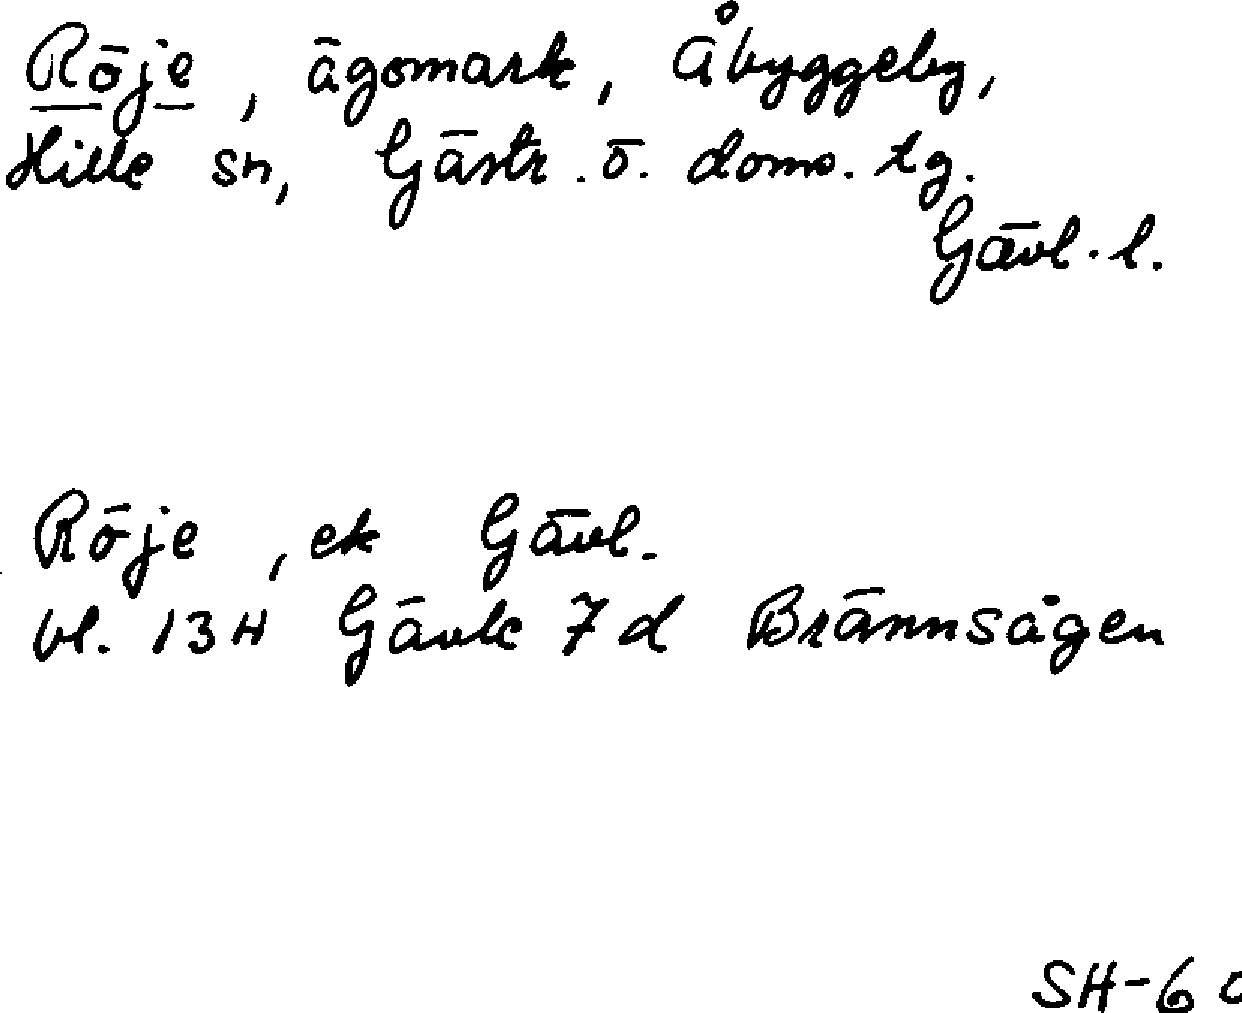 Röje, ägomark, Åbyggeby,
Hille sn, Gästr. ö. doms. tg.
Gävl. l.
Röje, ek Gävl.
bl. 13H Gävle 7d Brännsågen
SH-6